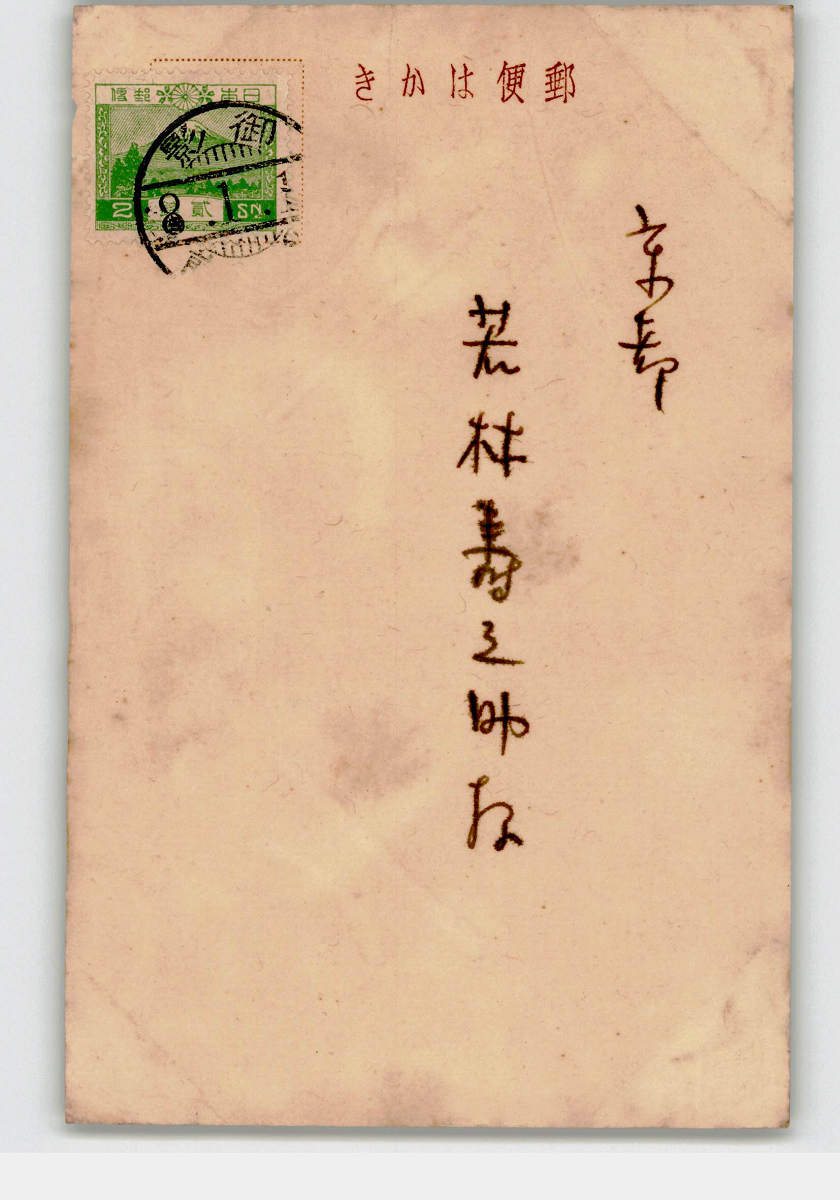 郵便はかき
日本郵便
2 貳 SN
御影
8.1.
京都
若林寿之助様